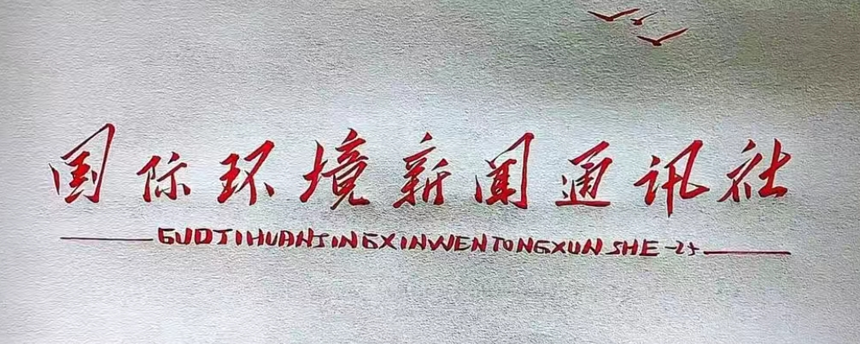 国际环境新闻通讯社
GUOJIHUANJINGXINWENTONGXUNSHE-25